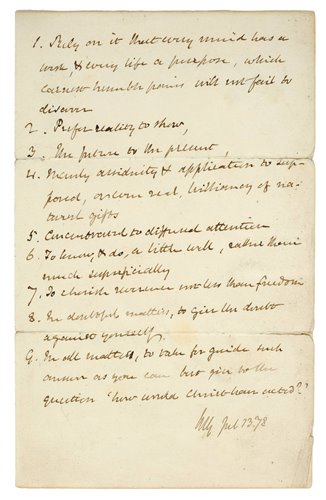 1. Rely on it that every mind has a
work, & every life a purpose, which
earnest humble pains will not fail to
discover
2. Prefer reality to show,
3. The future to the present,
4. Manly assiduity & application to
real, brilliancy of na-
tural gifts
5. Concentrated to diffused attention
6. To know, & do, a little well, rather than
much superficially
7. To cherish reverence not less than freedom
8. In doubtful matters, to give the doubt
against yourself,
9. In all matters, to take for guide such
answer as you can best give to the
question 'how would Christ have acted?'